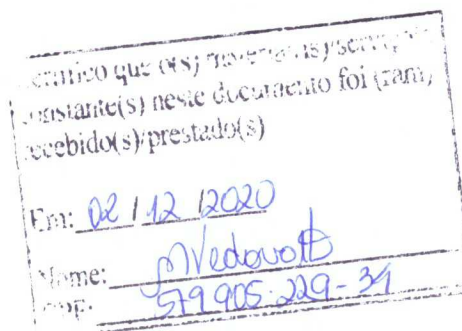 que o(s)
constante(s) neste documento foi (ram)
recebido(s)/prestado(s)
Em: 02 / 12 / 2020
Nome:
CPF: 579 905 229-34